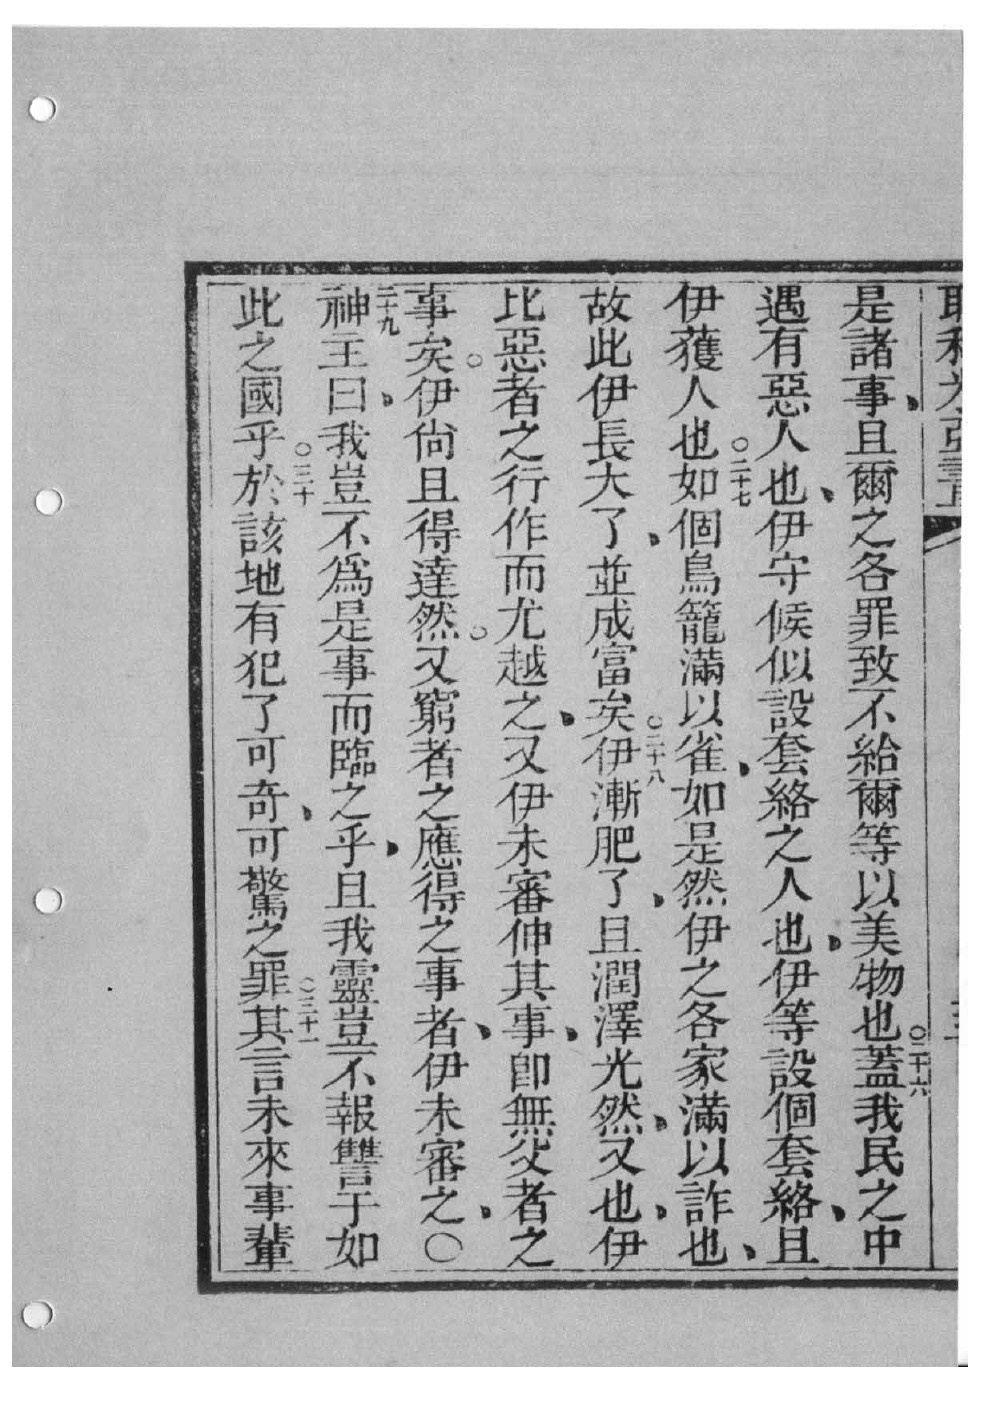 是諸事、且爾之各罪致不給爾等以美物也○二十六蓋我民之中
遇有惡人也、伊守候似設套絡之人也、伊等設個套絡、且
伊獲人也○二十七如個鳥籠滿以雀、如是然伊之各家滿以詐也、
故此伊長大了、並成富矣○二十八伊漸肥了、且潤澤光然、又也、伊
比惡者之行作而尤越之、又伊未審伸其事、即無父者之
事矣。伊尚且得達然。又窮者之應得之事者、伊未審之、○
二十九神主曰、我豈不為是事而臨之乎、且我靈豈不報讐于如
此之國乎○三十於該地有犯了可奇、可驚之罪○三十一其言未來事輩